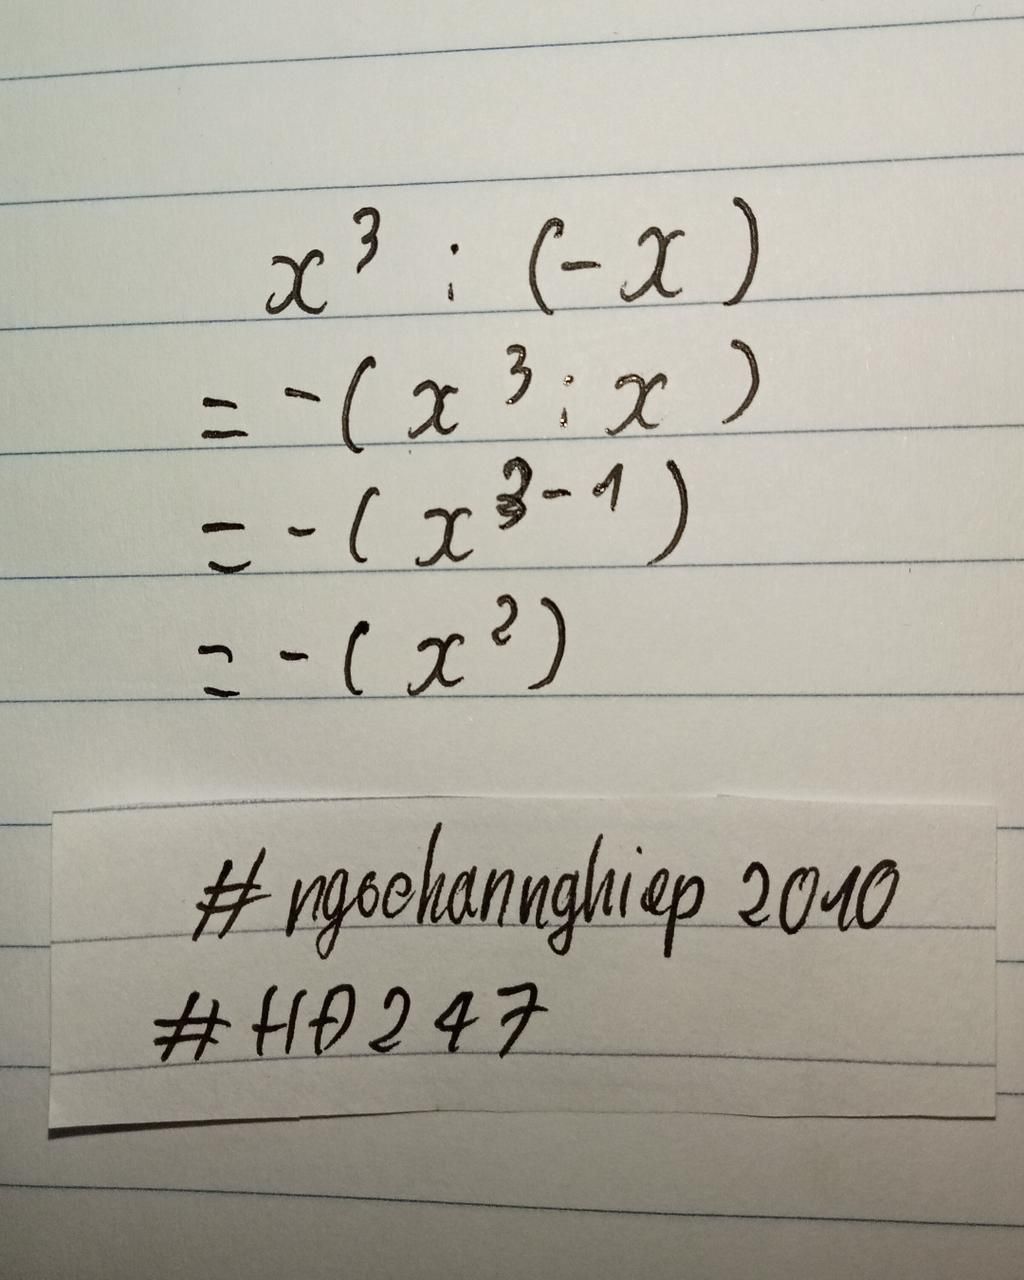 x³ : (-x)
= -(x³ : x)
= -(x³⁻¹)
= -(x²)
#ngochannghiep 2010
#HĐ247